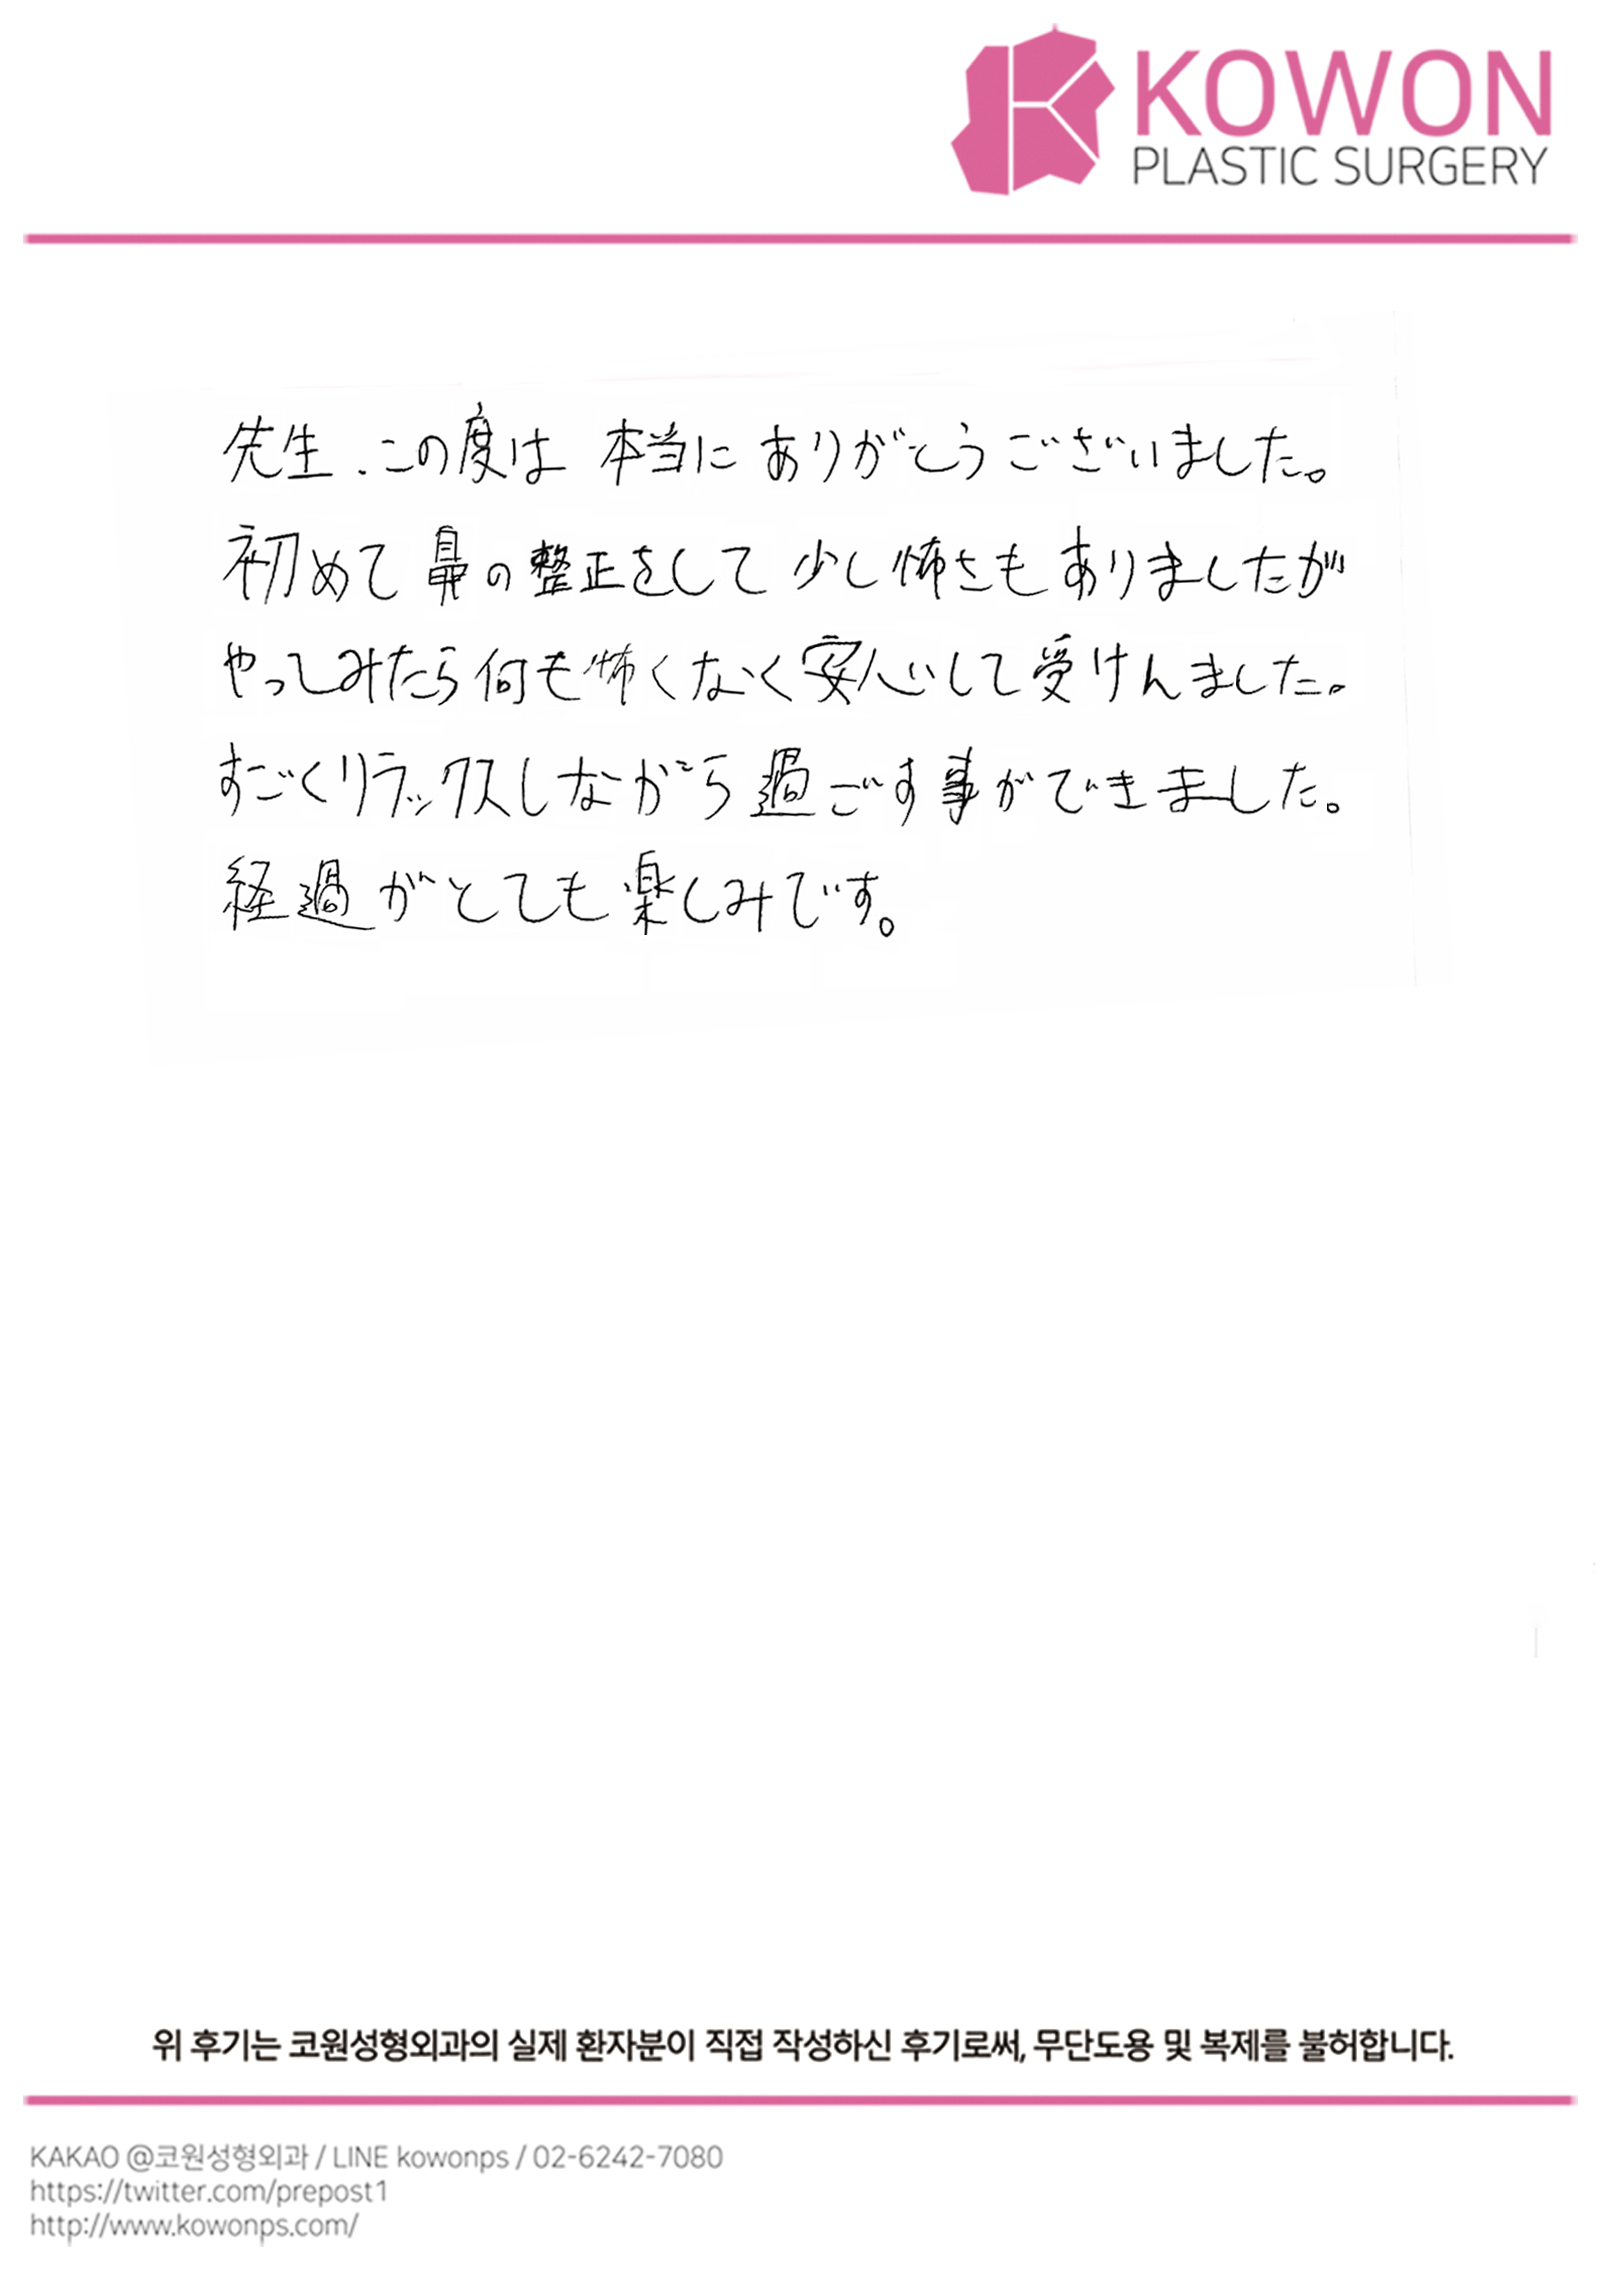 KOWON
PLASTIC SURGERY
先生、この度は 本当に ありがとうございました。
初めて 鼻の整正をして 少し怖さもありましたが
やっしみたら何も怖くなく安心して受けんました。
すごくリラックスしながら過ごす事ができました。
経過がとても楽しみです。
위 후기는 코원성형외과의 실제 환자분이 직접 작성하신 후기로써, 무단도용 및 복제를 불허합니다.
KAKAO @코원성형외과 / LINE kowonps / 02-6242-7080
https://twitter.com/prepost1
http://www.kowonps.com/